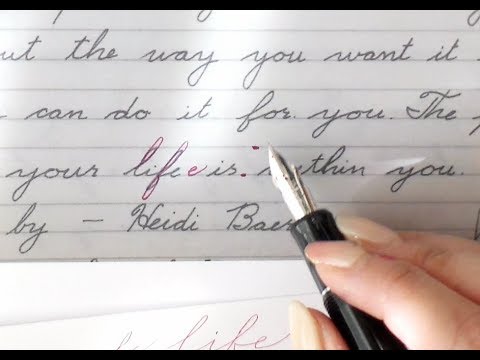 out the way you want it
can do it for you. The
your life is within you.
by - Heidi Baer
life